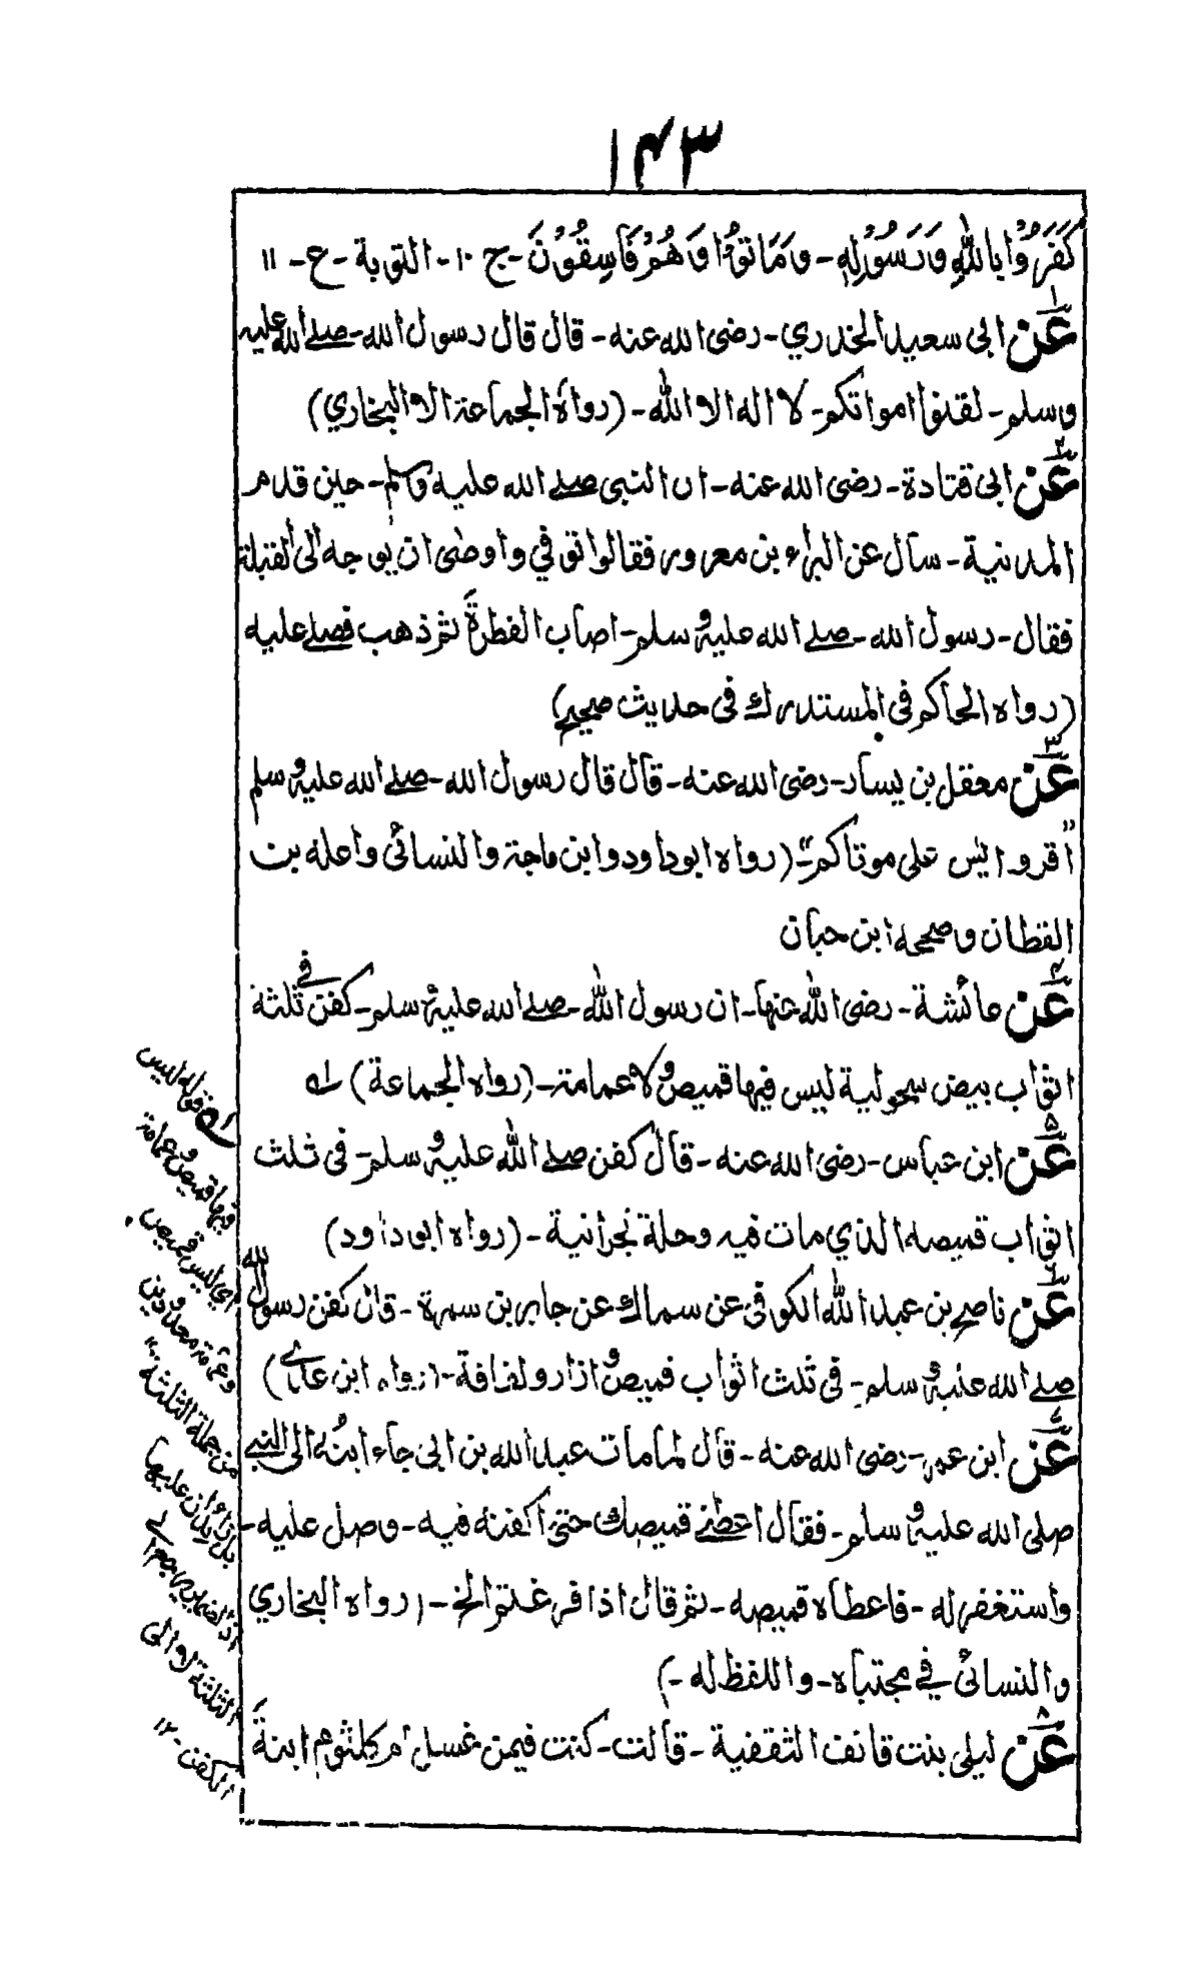 ١٤٣
كَفَرُوْا بِاللّٰهِ وَرَسُوْلِهٖ - وَمَاتُوْا وَهُمْ فَاسِقُوْنَ - ج ١٠ - التوبة - ع - ١١
١ عَنْ ابى سعيد الخدري - رضى الله عنه - قال قال رسول الله - صلے الله عليه
وسلم - لقنوا امواتكم - لا اله الا الله - (رواه الجماعة الا البخاري)
٢ عَنْ ابى قتادة - رضى الله عنه - ان النبى صلے الله عليه وسلم - حين قدم
المدنية - سأل عن البراء بن معرور فقالوا توفي واوطى ان يوجه الى القبلة
فقال - رسول الله - صلے الله عليه وسلم - اصاب الفطرة ثم ذهب فصلے عليه
(رواه الحاكم فى المستدرك فى حديث صحيح)
٣ عَنْ معقل بن يسار - رضى الله عنه - قال قال رسول الله - صلے الله عليه وسلم
"اقروا يٰس على موتاكم" - (رواه ابو داود وابن ماجة والنسائى واعله بت
القطان وصححه ابن حبان
٤ عَنْ عائشة - رضى الله عنها - ان رسول الله - صلے الله عليه وسلم - كفن فى ثلثة
اثواب بيض سحولية ليس فيها قميص ولا عمامة - (رواه الجماعة) له
٥ عَنْ ابن عباس - رضى الله عنه - قال كفن صلے الله عليه وسلم - فى ثلث
اثواب قميصه الذي مات فيه وحلة نجرانية - (رواه ابو داود)
٦ عَنْ ناصح بن عبد الله الكوفى عن سماك عن جابر بن سمرة - قال كفن رسول الله
صلے الله عليه وسلم - فى ثلث اثواب قميص وازار ولفافة - (رواه ابن عدي)
٧ عَنْ ابن عمر - رضى الله عنه - قال لما مات عبد الله بن ابى جاء ابنه الى النبے
صلى الله عليه وسلم - فقال اعطنے قميصك حتى اكفنه فيه - وصل عليه -
واستغفر له - فاعطاه قميصه - ثم قال اذا فرغتم الخ - (رواه البخاري
والنسائى في مجتباه - واللفظ له -)
٨ عَنْ ليلى بنت قانف الثقفية - قالت - كنت فيمن غسل ام كلثوم ابنة
له قوله ليس
فيها قميص وعمامة
اي ليس قميص
وعمامة معدودين
من جملة الثلثة
الثلثة الاولى
الكفن - ١٢